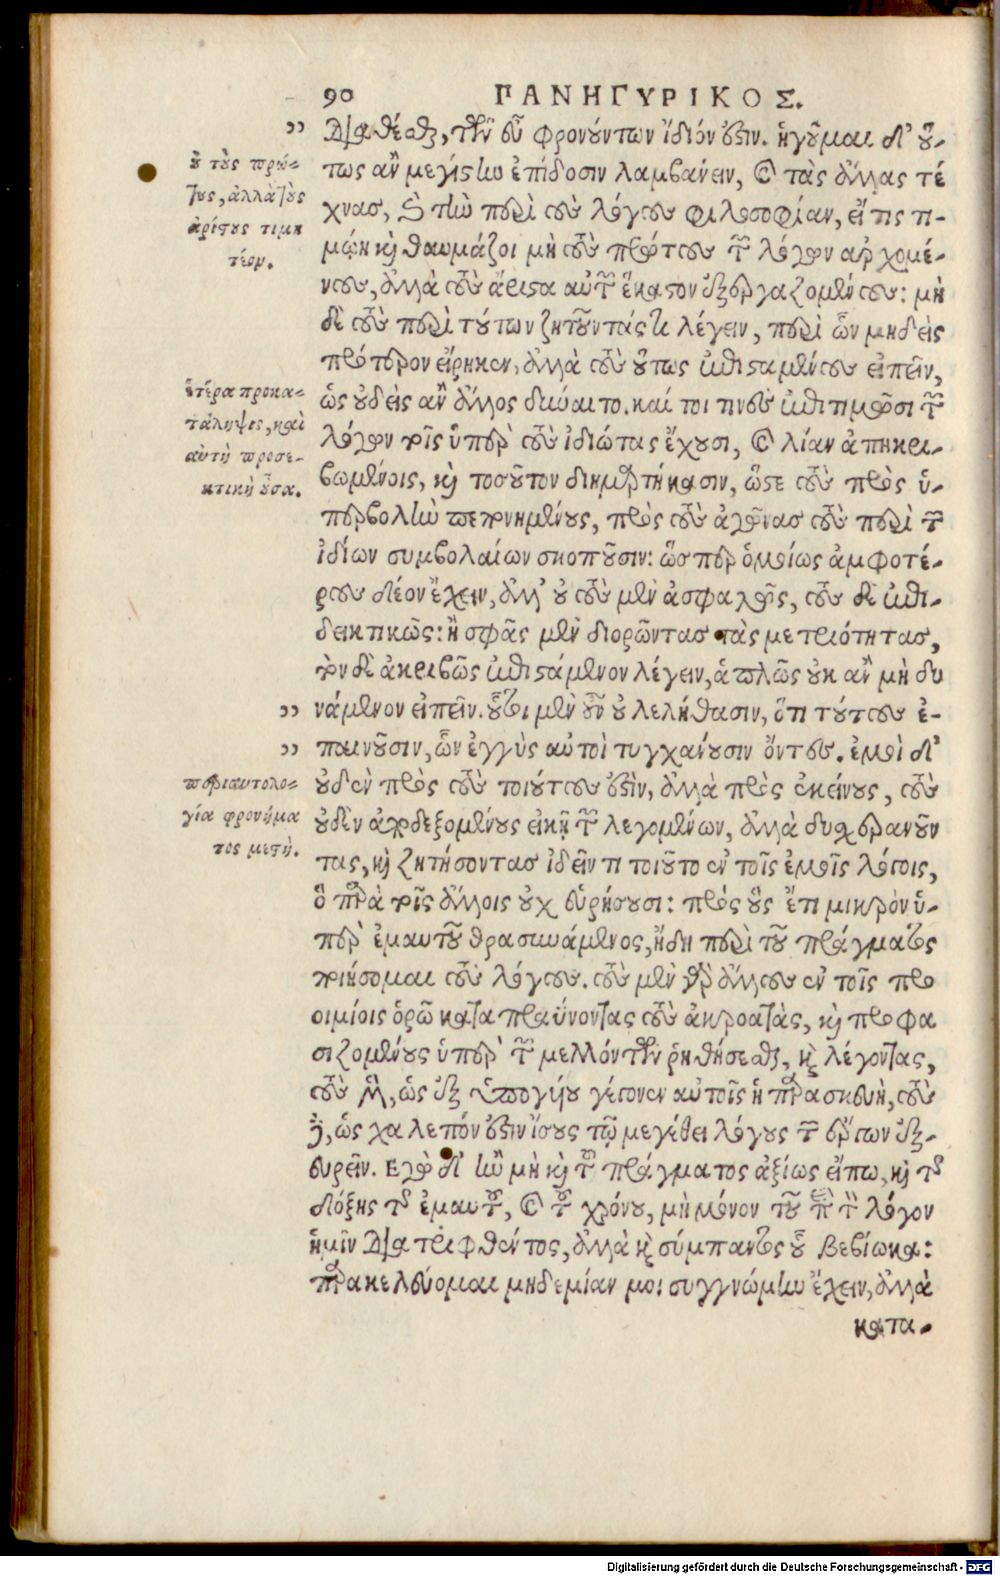 90 ΠΑΝΗΓΥΡΙΚΟΣ.
” διαθέσθαι, τῶν εὖ φρονούντων ἴδιόν ἐστιν. ἡγοῦμαι δ' οὕ-
τως ἂν μεγίστην ἐπίδοσιν λαμβάνειν, καὶ τὰς ἄλλας τέ
χνας, καὶ τὴν περὶ τοὺς λόγους φιλοσοφίαν, εἴ τις τι-
μῴη καὶ θαυμάζοι μὴ τοὺς πρώτους τῶν λόγων ἀρχομέ-
νους, ἀλλὰ τοὺς ἄριστα αὐτῶν ἕκαστον ἐξεργαζομένους: μὴ
δὲ τοὺς περὶ τούτων ζητοῦντάς τι λέγειν, περὶ ὧν μηδεὶς
πρότερον εἴρηκεν, ἀλλὰ τοὺς οὕτως ἐπισταμένους εἰπεῖν,
ὡς οὐδεὶς ἂν ἄλλος δύναιτο. καί τοι τινὲς ἐπιτιμῶσι τῶν
λόγων τοῖς ὑπὲρ τοὺς ἰδιώτας ἔχουσι, καὶ λίαν ἀπηκρι-
βωμένοις, καὶ τοσοῦτον διημαρτήκασιν, ὥστε τοὺς πρὸς ὑ-
περβολὴν πεποιημένους, πρὸς τοὺς ἀγῶνας τοὺς περὶ τῶν
ἰδίων συμβολαίων σκοποῦσιν: ὥσπερ ὁμοίως ἀμφοτέ-
ρους δέον ἔχειν, ἀλλ' οὐ τοὺς μὲν ἀσφαλῶς, τοὺς δὲ ἐπι-
δεικτικῶς: ἢ σφᾶς μὲν διορῶντας τὰς μετριότητας,
τὸν δὲ ἀκριβῶς ἐπιστάμενον λέγειν, ἁπλῶς οὐκ ἂν μὴ δυ
” νάμενον εἰπεῖν. οὗτοι μὲν οὖν οὐ λελήθασιν, ὅτι τούτους ἐ-
” παινοῦσιν, ὧν ἐγγὺς αὐτοὶ τυγχάνουσιν ὄντες. ἐμοὶ δ'
οὐδὲν πρὸς τοὺς τοιούτους ἐστὶν, ἀλλὰ πρὸς ἐκείνους, τοὺς
οὐδὲν ἀποδεξομένους εἰκῆ τῶν λεγομένων, ἀλλὰ δυσχερανοῦν
τας, καὶ ζητήσοντας ἰδεῖν τι τοιοῦτο ἐν τοῖς ἐμοῖς λόγοις,
ὃ παρὰ τοῖς ἄλλοις οὐχ εὑρήσουσι: πρὸς οὓς ἔτι μικρὸν ὑ-
πὲρ ἐμαυτοῦ θρασυνάμενος, ἤδη περὶ τοῦ πράγματος
ποιήσομαι τοὺς λόγους. τοὺς μὲν γὰρ ἄλλους ἐν τοῖς προ
οιμίοις ὁρῶ καταπραΰνοντας τοὺς ἀκροατὰς, καὶ προφα
σιζομένους ὑπὲρ τῶν μελλόντων ῥηθήσεσθαι, καὶ λέγοντας,
τοὺς μὲν, ὡς ἐξ ὑπογύου γέγονεν αὐτοῖς ἡ παρασκευὴ, τοὺς
δὲ, ὡς χαλεπόν ἐστιν ἴσους τῷ μεγέθει λόγους τῶν ἔργων ἐξ-
ευρεῖν. Ἐγὼ δ' ἢν μὴ καὶ τοῦ πράγματος ἀξίως εἴπω, καὶ τῆς
δόξης τῆς ἐμαυτοῦ, καὶ τοῦ χρόνου, μὴ μόνον τοῦ περὶ τὸν λόγον
ἡμῖν διατριφθέντος, ἀλλὰ καὶ σύμπαντος οὗ βεβίωκα:
παρακελεύομαι μηδεμίαν μοι συγγνώμην ἔχειν, ἀλλὰ
κατα-
οὐ τοὺς πρώ-
τους, ἀλλὰ τοὺς
ἀρίστους τιμη
τέον.
ἑτέρα προκα-
τάληψις, καὶ
αὐτὴ προσε-
κτικὴ οὖσα.
περιαυτολο-
γία φρονήμα
τος μεστή.
Digitalisierung gefördert durch die Deutsche Forschungsgemeinschaft - DFG